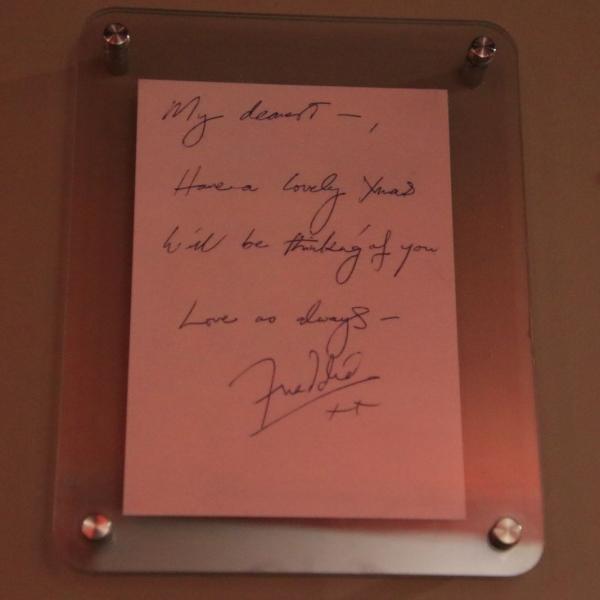 My dearest —,
Have a lovely Xmas
Will be thinking of you
Love as always —
Freddie
++